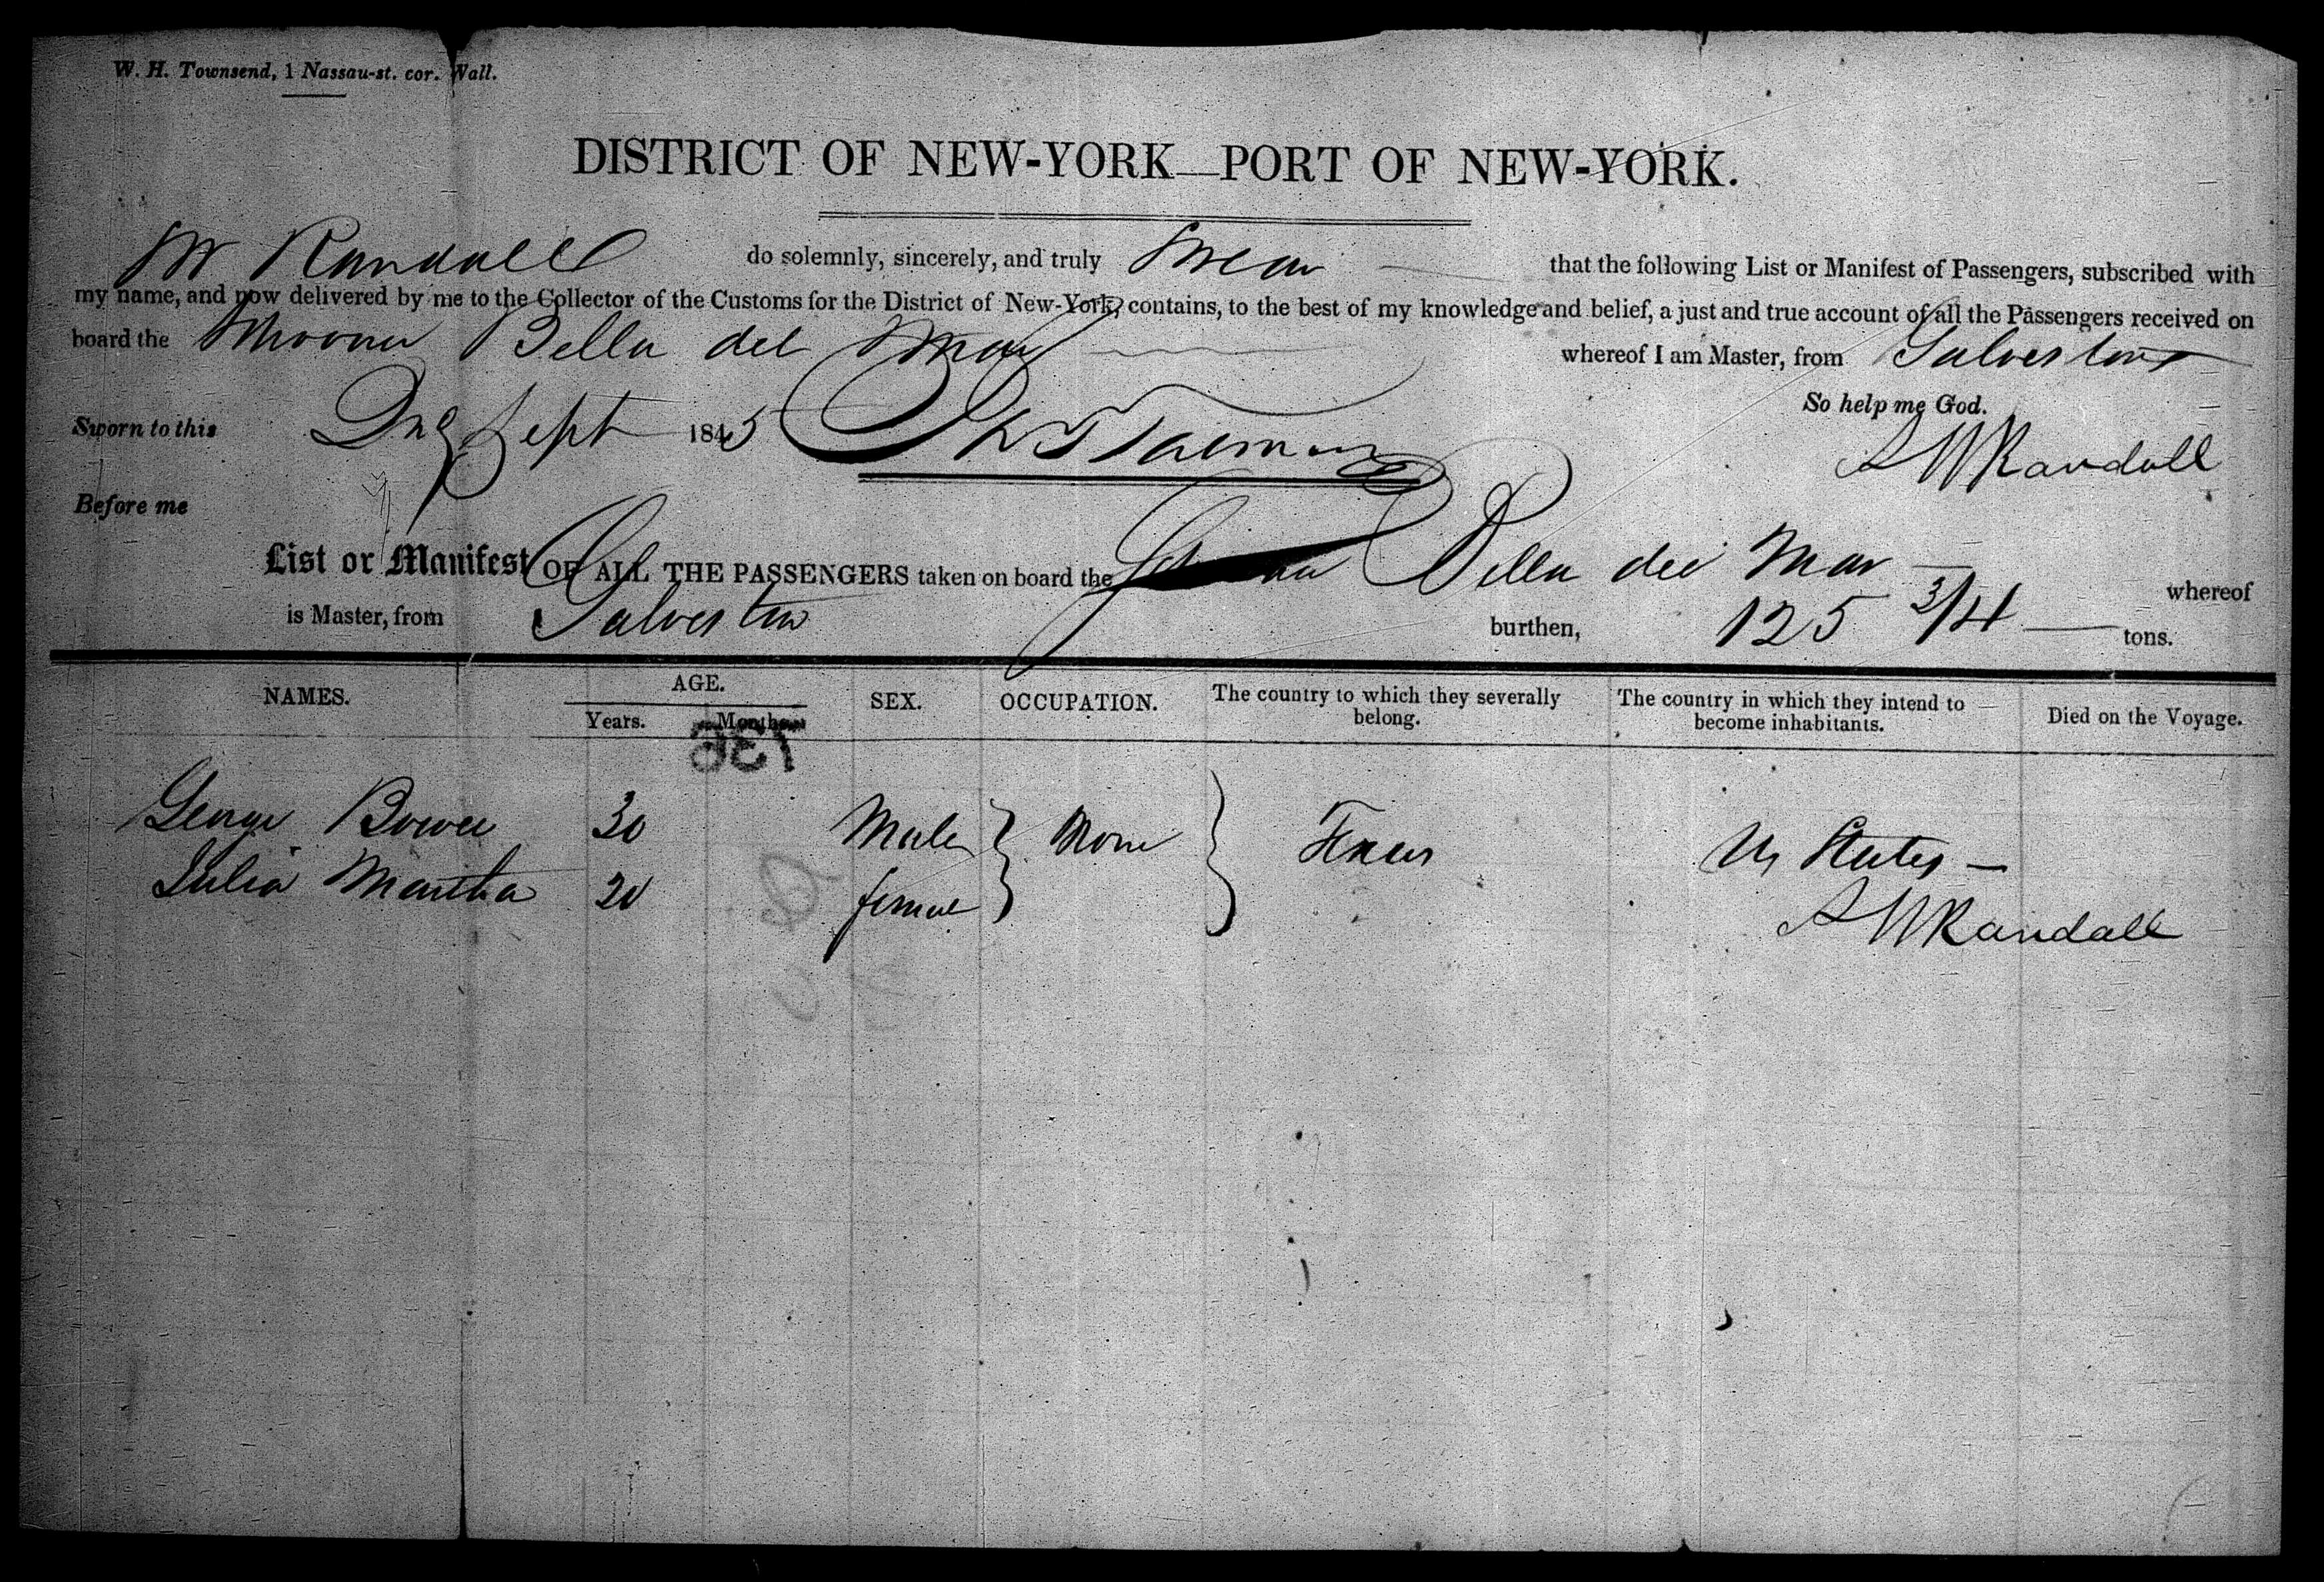 W. H. Townsend, 1 Nassau-st. cor. Wall.
DISTRICT OF NEW-YORK—PORT OF NEW-YORK.
W Randall do solemnly, sincerely, and truly Swear that the following List or Manifest of Passengers, subscribed with
my name, and now delivered by me to the Collector of the Customs for the District of New-York, contains, to the best of my knowledge and belief, a just and true account of all the Passengers received on
board the Schooner Bella del Mar whereof I am Master, from Galveston
So help me God.
Sworn to this Sept 1845
S W Randall
Before me
List or Manifest OF ALL THE PASSENGERS taken on board the Bella del Mar whereof
is Master, from Galveston burthen, 125 3/4 tons.
NAMES. AGE. SEX. OCCUPATION. The country to which they severally belong. The country in which they intend to become inhabitants. Died on the Voyage.
Years. Months
136
George 30 Male None Texas U States —
Julia Martha 20 female
S W Randall